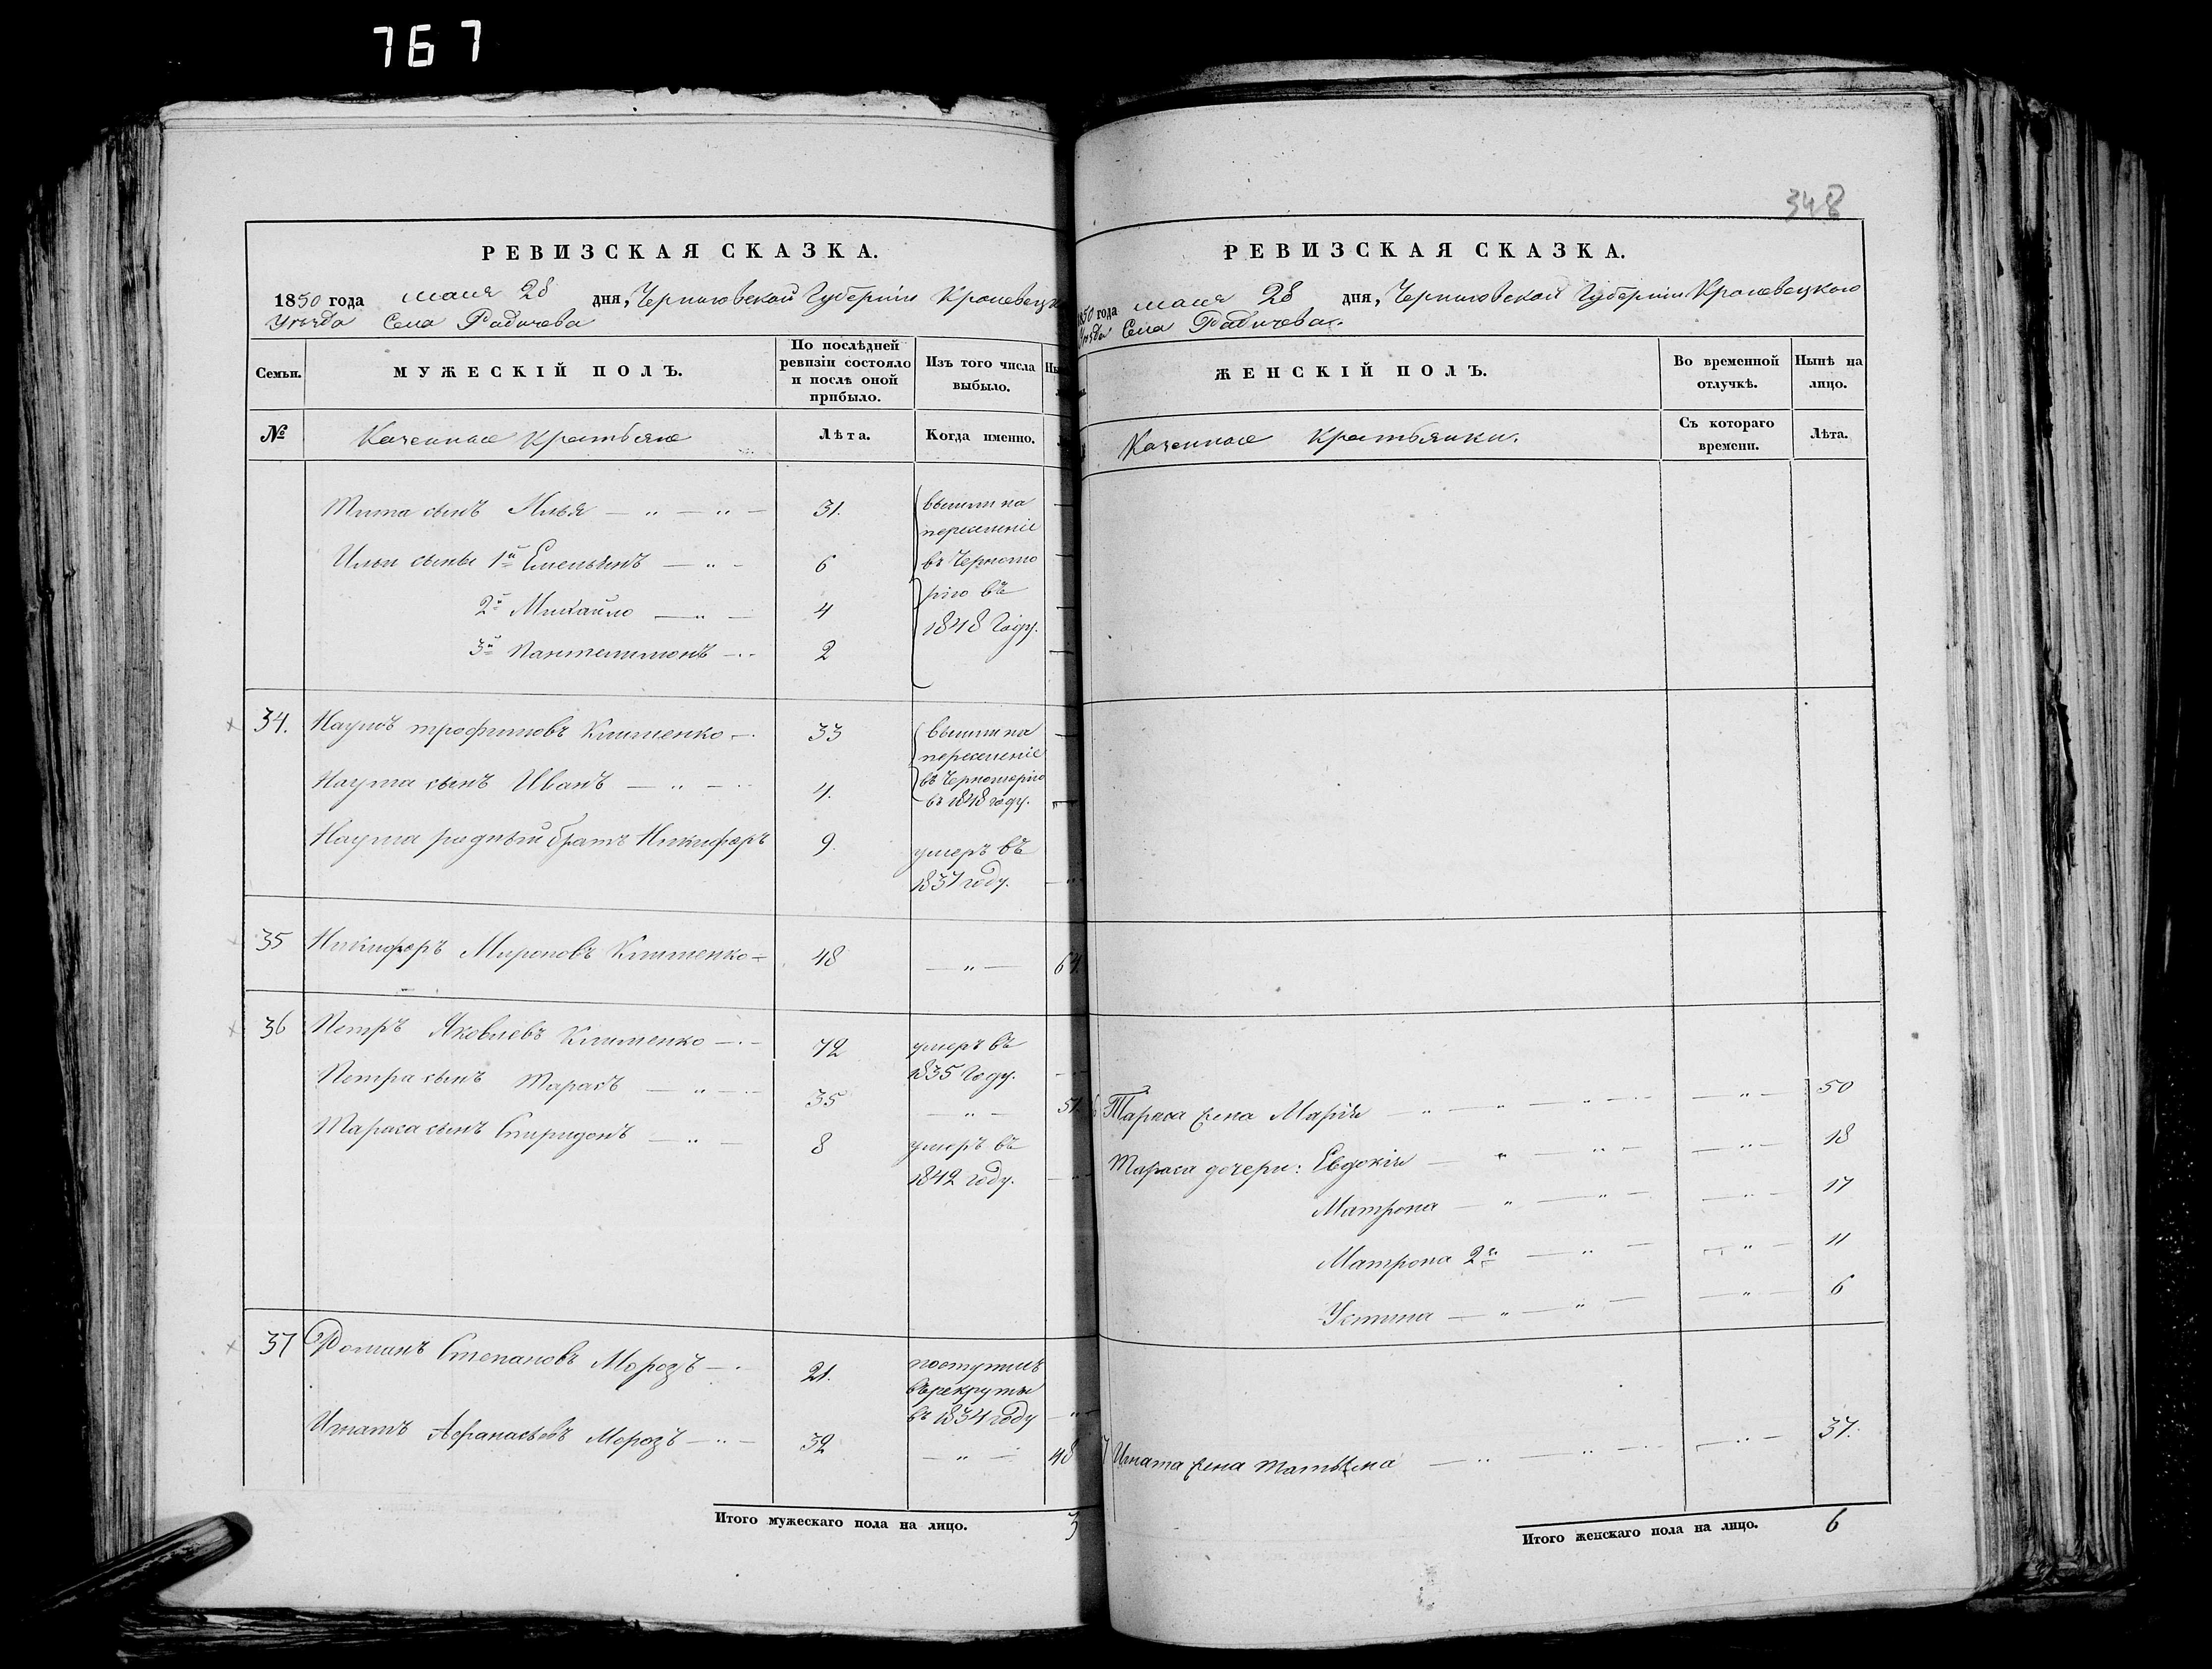 767
РЕВИЗСКАЯ СКАЗКА.
1850 года маия 28 дня, Черниговской Губерніи Кролевецк
Уѣзда Села Радичева
Семьи.
МУЖЕСКІЙ ПОЛЪ.
По послѣдней ревизіи состояло и послѣ оной прибыло.
Изъ того числа выбыло.
№
Казенные Крестьяне
Лѣта.
Когда именно.
Тита сынъ Илья 31.
вышли на
переселеніе
Ильи сыны 1й Емельянъ 6
въ Черномо
рію въ
2й Михайло 4
1848 Году.
3й Пантелимонъ 2
34. Наумъ трофимовъ Клименко 33
вышли на
переселеніе
Наума сынъ Иванъ 4.
въ Черноморію
въ 1848 году.
Наума родный братъ Никифоръ 9.
умеръ въ
1837 году.
35 Никифоръ Мироновъ Клименко 48 64.
36 Петръ Яковлевъ Клименко 72
умеръ въ
1835 Году.
Петра сынъ Тарасъ 35 51.
Тараса сынъ Спиридонъ 8
умеръ въ
1842 году.
37 Романъ Степановъ Морозъ 21.
поступилъ
въ рекруты
въ 1834 году
Игнатъ Афанасьевъ Морозъ 32 48
Итого мужескаго пола на лицо. 3
348
РЕВИЗСКАЯ СКАЗКА.
1850 года маия 28 дня, Черниговской Губерніи Кролевецкого
Уѣзда Села Радичева.
ЖЕНСКІЙ ПОЛЪ.
Во временной отлучкѣ.
Нынѣ на лицо.
Казенные Крестьянки.
Съ котораго времени.
Лѣта.
Тараса жена Марія 50
Тараса дочери: Евдокія 18
Матрона 17
Матрона 2я 11
Устина 6
Игната жена Татьяна 37.
Итого женскаго пола на лицо. 6